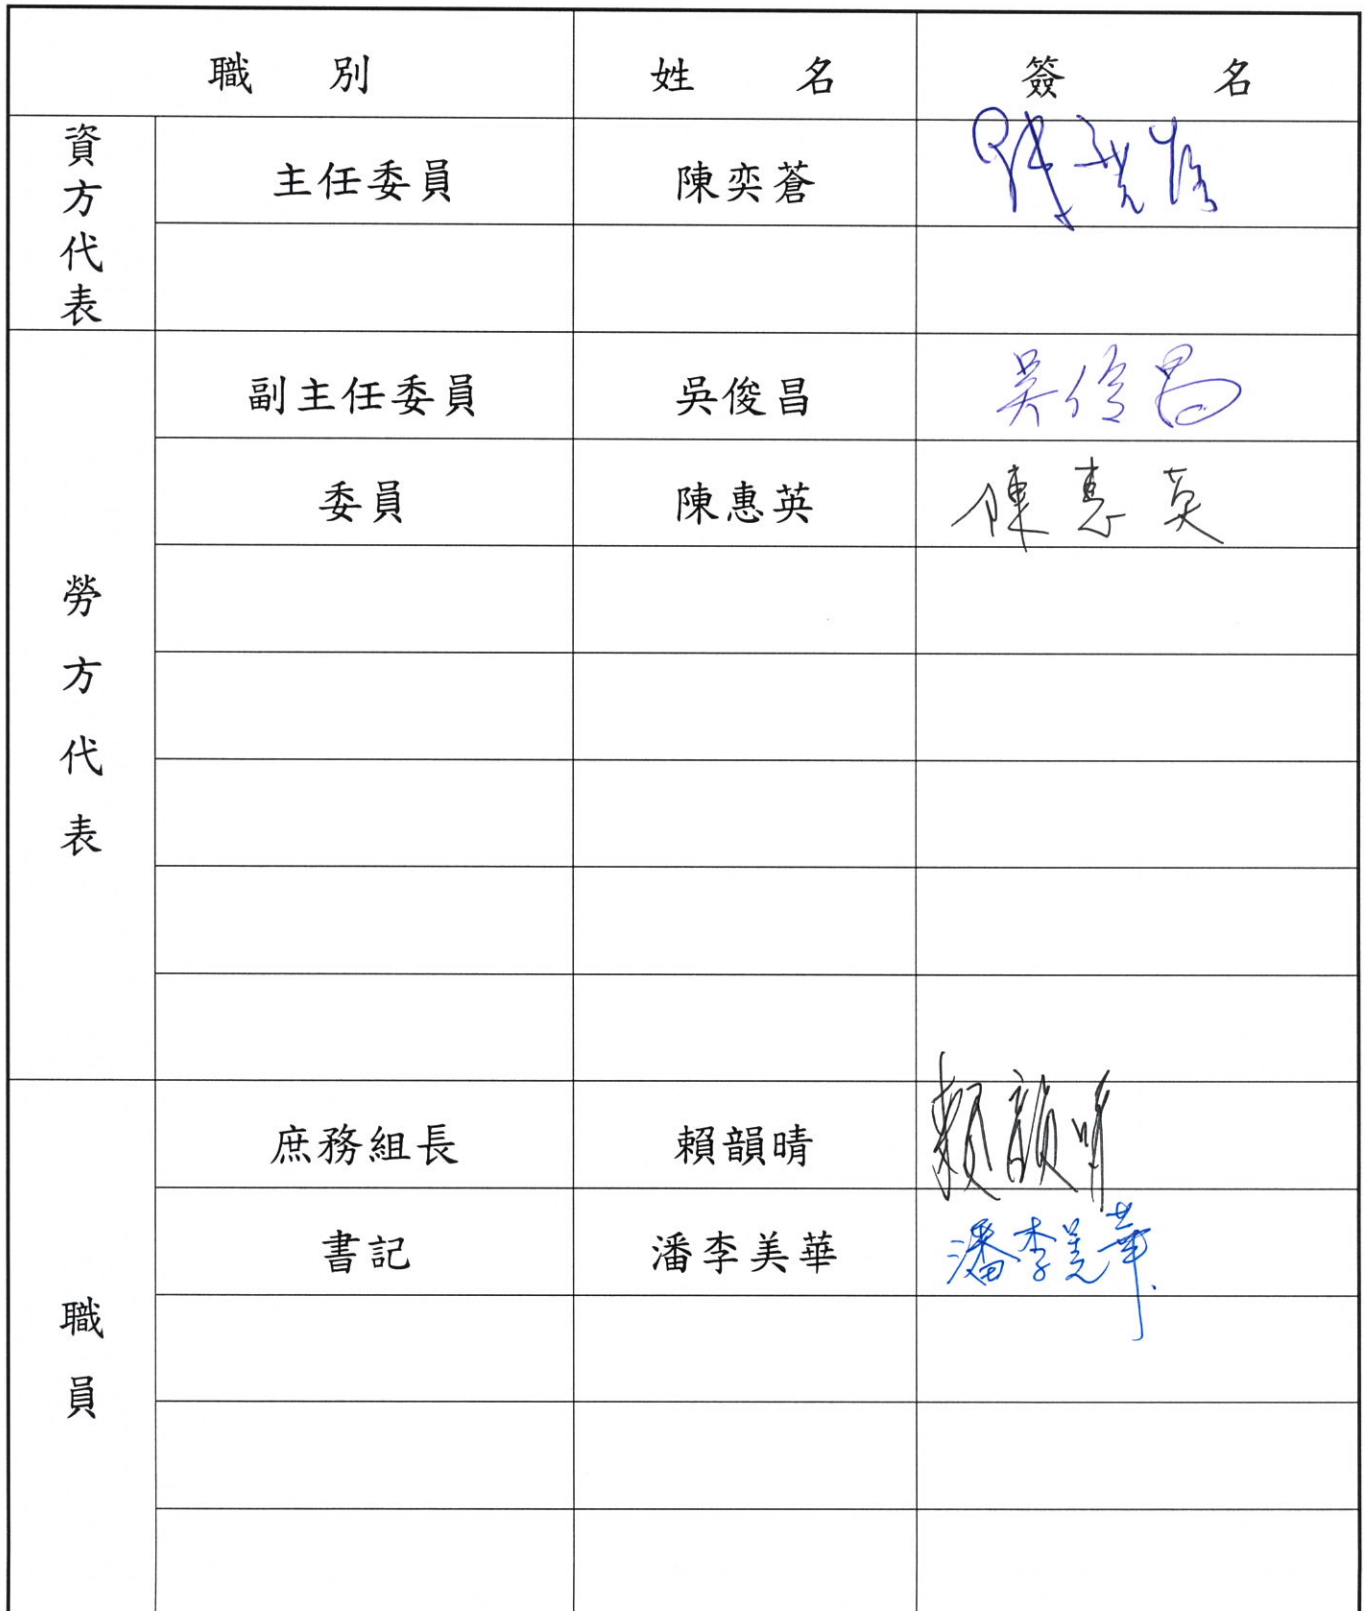 職別 姓名 簽名
資方代表
主任委員 陳奕蒼
勞方代表
副主任委員 吳俊昌 吳俊昌
委員 陳惠英 陳惠英
職員
庶務組長 賴韻晴 賴韻晴
書記 潘李美華 潘李美華